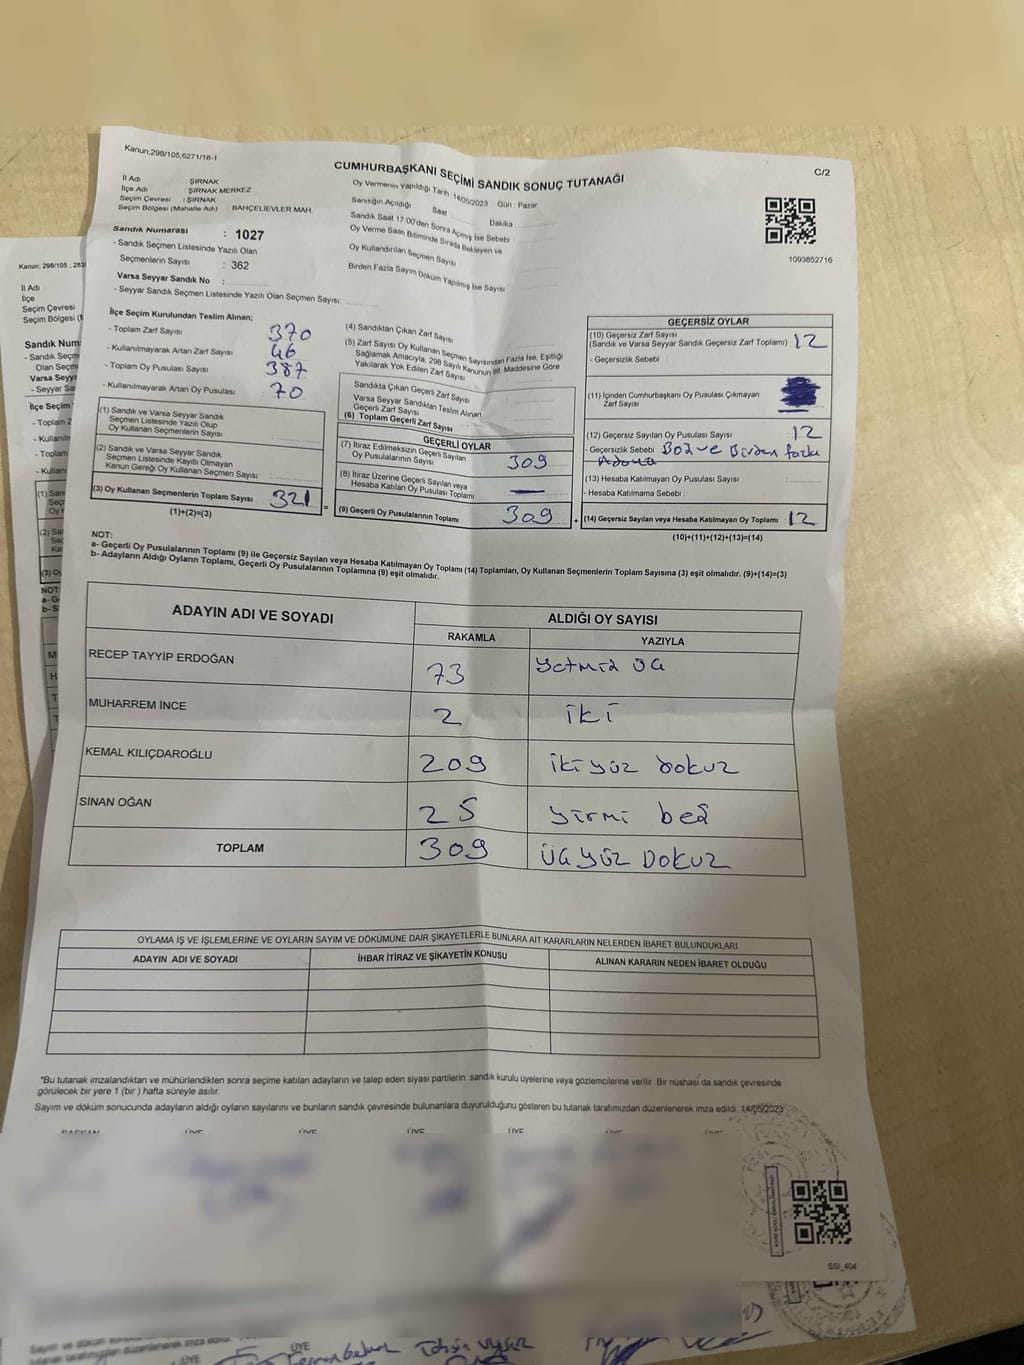 Kanun,298/105,6271/18-1
C/2
CUMHURBAŞKANI SEÇİMİ SANDIK SONUÇ TUTANAĞI
İl Adı : ŞIRNAK
İlçe Adı ŞIRNAK MERKEZ
Seçim Çevresi : ŞIRNAK
Seçim Bölgesi (Mahalle Adı) BAHÇELİEVLER MAH.
Sandık Numarası : 1027
- Sandık Seçmen Listesinde Yazılı Olan
Seçmenlerin Sayısı : 362
Varsa Seyyar Sandık No :
- Seyyar Sandık Seçmen Listesinde Yazılı Olan Seçmen Sayısı:
Oy Vermenin Yapıldığı Tarih : 14/05/2023 Gün : Pazar
Sandığın Açıldığı Saat Dakika
Sandık Saat 17.00'den Sonra Açılmış İse Sebebi
Oy Verme Saati Bitiminde Sırada Bekleyen ve
Oy Kullandırılan Seçmen Sayısı
Birden Fazla Sayım Döküm Yapılmış İse Sayısı
1093852716
İlçe Seçim Kurulundan Teslim Alınan;
- Toplam Zarf Sayısı 370
- Kullanılmayarak Artan Zarf Sayısı 46
- Toplam Oy Pusulası Sayısı 387
- Kullanılmayarak Artan Oy Pusulası 70
(1) Sandık ve Varsa Seyyar Sandık
Seçmen Listesinde Yazılı Olup
Oy Kullanan Seçmenlerin Sayısı
(2) Sandık ve Varsa Seyyar Sandık
Seçmen Listesinde Kayıtlı Olmayan
Kanun Gereği Oy Kullanan Seçmen Sayısı
(3) Oy Kullanan Seçmenlerin Toplam Sayısı 321
(1)+(2)=(3)
(4) Sandıktan Çıkan Zarf Sayısı
(5) Zarf Sayısı Oy Kullanan Seçmen Sayısından Fazla İse, Eşitliği
Sağlamak Amacıyla, 298 Sayılı Kanunun 98. Maddesine Göre
Yakılarak Yok Edilen Zarf Sayısı
Sandıkta Çıkan Geçerli Zarf Sayısı
Varsa Seyyar Sandıktan Teslim Alınan
Geçerli Zarf Sayısı
(6) Toplam Geçerli Zarf Sayısı
GEÇERLİ OYLAR
(7) İtiraz Edilmeksizin Geçerli Sayılan
Oy Pusulalarının Sayısı 309
(8) İtiraz Üzerine Geçerli Sayılan veya
Hesaba Katılan Oy Pusulası Toplamı —
(9) Geçerli Oy Pusulalarının Toplamı 309
=
+
GEÇERSİZ OYLAR
(10) Geçersiz Zarf Sayısı
(Sandık ve Varsa Seyyar Sandık Geçersiz Zarf Toplamı) 12
- Geçersizlik Sebebi
(11) İçinden Cumhurbaşkanı Oy Pusulası Çıkmayan
Zarf Sayısı
(12) Geçersiz Sayılan Oy Pusulası Sayısı 12
- Geçersizlik Sebebi Boş ve Birden fazla
(13) Hesaba Katılmayan Oy Pusulası Sayısı
- Hesaba Katılmama Sebebi
(14) Geçersiz Sayılan veya Hesaba Katılmayan Oy Toplamı 12
(10)+(11)+(12)+(13)=(14)
NOT:
a- Geçerli Oy Pusulalarının Toplamı (9) ile Geçersiz Sayılan veya Hesaba Katılmayan Oy Toplamı (14) Toplamları, Oy Kullanan Seçmenlerin Toplam Sayısına (3) eşit olmalıdır. (9)+(14)=(3)
b- Adayların Aldığı Oyların Toplamı, Geçerli Oy Pusulalarının Toplamına (9) eşit olmalıdır.
ADAYIN ADI VE SOYADI ALDIĞI OY SAYISI
RAKAMLA YAZIYLA
RECEP TAYYİP ERDOĞAN 73 yetmiş üç
MUHARREM İNCE 2 iki
KEMAL KILIÇDAROĞLU 209 ikiyüz dokuz
SİNAN OĞAN 25 yirmi beş
TOPLAM 309 üçyüz dokuz
OYLAMA İŞ VE İŞLEMLERİNE VE OYLARIN SAYIM VE DÖKÜMÜNE DAİR ŞİKAYETLERLE BUNLARA AİT KARARLARIN NELERDEN İBARET BULUNDUKLARI
ADAYIN ADI VE SOYADI İHBAR İTİRAZ VE ŞİKAYETİN KONUSU ALINAN KARARIN NEDEN İBARET OLDUĞU
*Bu tutanak imzalandıktan ve mühürlendikten sonra seçime katılan adayların ve talep eden siyasi partilerin sandık kurulu üyelerine veya gözlemcilerine verilir. Bir nüshası da sandık çevresinde
görülecek bir yere 1 (bir) hafta süreyle asılır.
Sayım ve döküm sonucunda adayların aldığı oyların sayılarını ve bunların sandık çevresinde bulunanlara duyurulduğunu gösteren bu tutanak tarafımızdan düzenlenerek imza edildi. 14/05/2023
BAŞKAN ÜYE ÜYE ÜYE ÜYE ÜYE ÜYE
SSİ_404
Kanun: 298/105
İl Adı
İlçe
Seçim Çevresi
Seçim Bölgesi
ÜYE
ÜYE